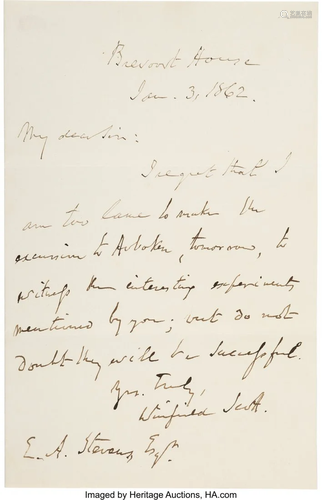 Brevoort House
Jan. 3, 1862.
My dear sir:
I regret that I
am too lame to make the
excursion to Hoboken, tomorrow, to
witness the interesting experiments
mentioned by you; but do not
doubt they will be successful.
Yrs. truly,
Winfield Scott.
E. A. Stevens, Esqr.
Imaged by Heritage Auctions, HA.com